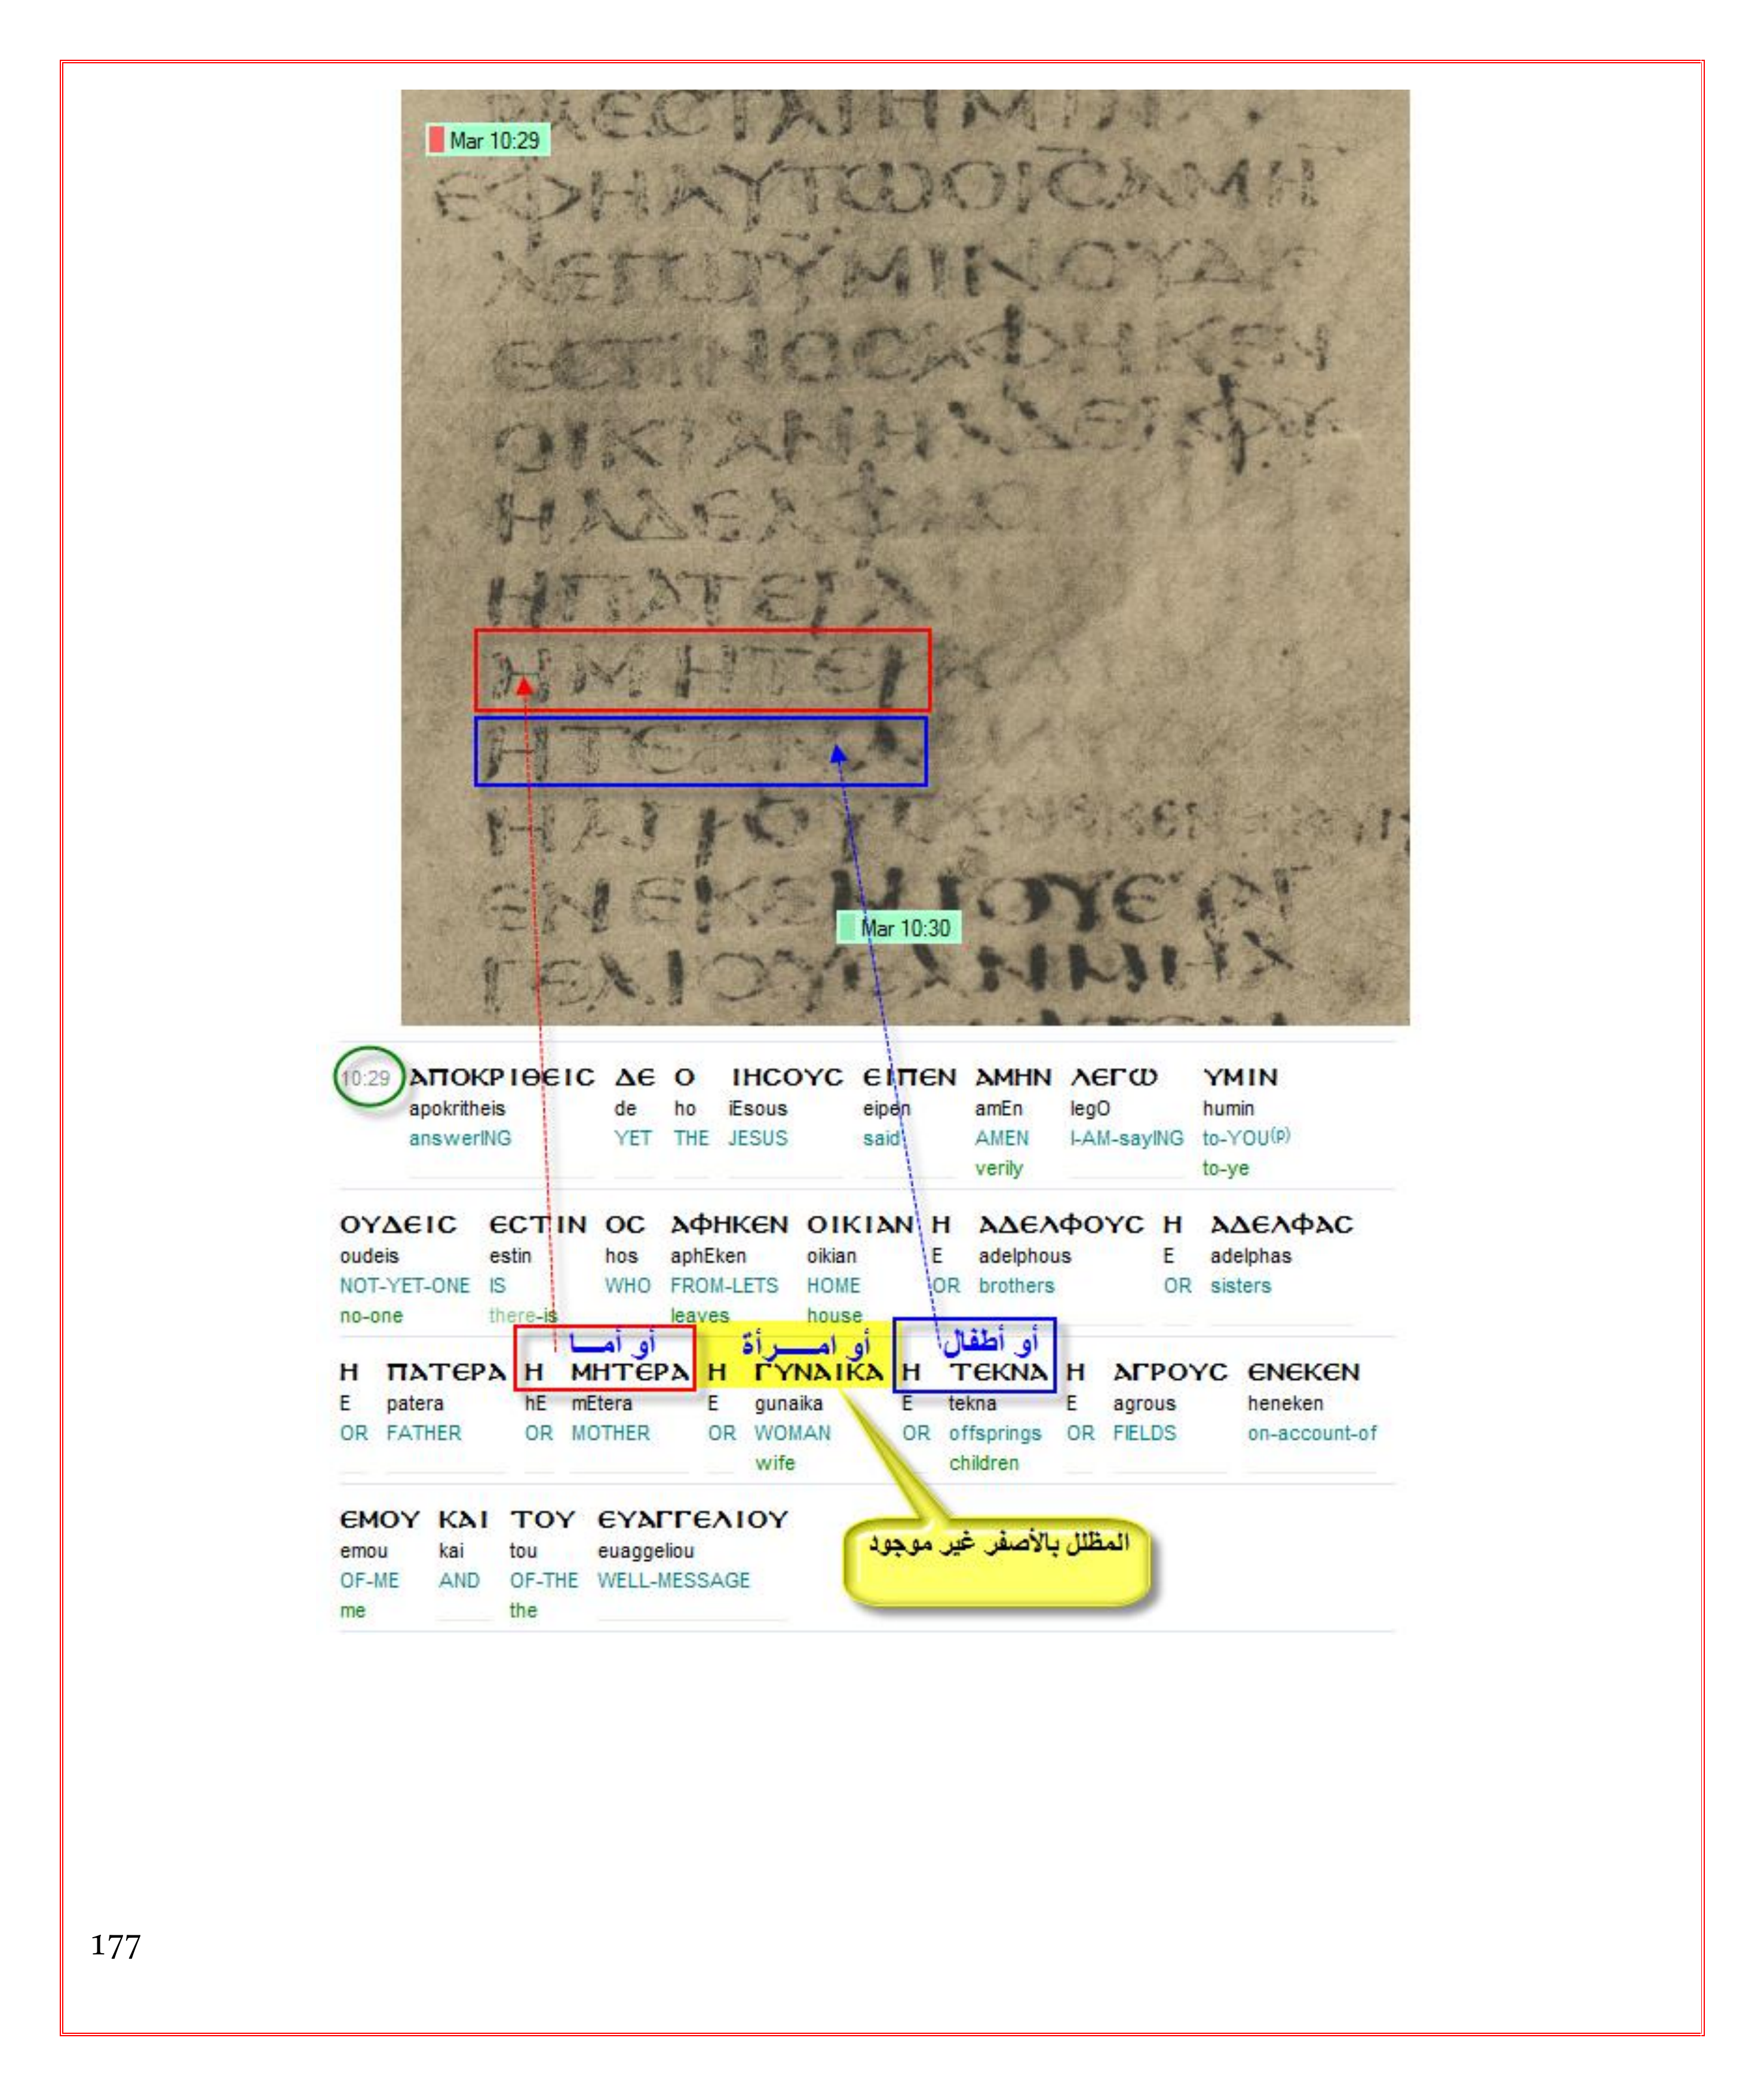 Mar 10:29
ΕΦΗΑΥΤΩΟΙϹΑΜΗ
ΛΕΓΩΫΜΙΝΟΥΔΕ
ΕϹΤΙΝΟϹΑΦΗΚΕΝ
ΟΙΚΙΑΝΗΑΔΕΛΦΟΥ
ΗΑΔΕΛΦΑϹ
ΗΠΑΤΕΡΑ
ΗΜΗΤΕΡΑ
ΗΤΕΚΝΑ
ΗΑΓΡΟΥϹ
ΕΝΕΚΕΝΤΟΥΕΥΑΓ
Mar 10:30
ΓΕΛΙΟΥΕΑΝΜΗΛ
10:29 ΑΠΟΚΡΙΘΕΙϹ ΔΕ Ο ΙΗϹΟΥϹ ΕΙΠΕΝ ΑΜΗΝ ΛΕΓΩ ΥΜΙΝ
apokritheis de ho iEsous eipen amEn legO humin
answerING YET THE JESUS said AMEN I-AM-sayING to-YOU(p)
verily to-ye
ΟΥΔΕΙϹ ΕϹΤΙΝ ΟϹ ΑΦΗΚΕΝ ΟΙΚΙΑΝ Η ΑΔΕΛΦΟΥϹ Η ΑΔΕΛΦΑϹ
oudeis estin hos aphEken oikian E adelphous E adelphas
NOT-YET-ONE IS WHO FROM-LETS HOME OR brothers OR sisters
no-one there-is leaves house
أو أمـــا أو امـــرأة أو أطفال
Η ΠΑΤΕΡΑ Η ΜΗΤΕΡΑ Η ΓΥΝΑΙΚΑ Η ΤΕΚΝΑ Η ΑΓΡΟΥϹ ΕΝΕΚΕΝ
E patera hE mEtera E gunaika E tekna E agrous heneken
OR FATHER OR MOTHER OR WOMAN OR offsprings OR FIELDS on-account-of
wife children
ΕΜΟΥ ΚΑΙ ΤΟΥ ΕΥΑΓΓΕΛΙΟΥ
emou kai tou euaggeliou
OF-ME AND OF-THE WELL-MESSAGE
me the
المظلل بالأصفر غير موجود
177